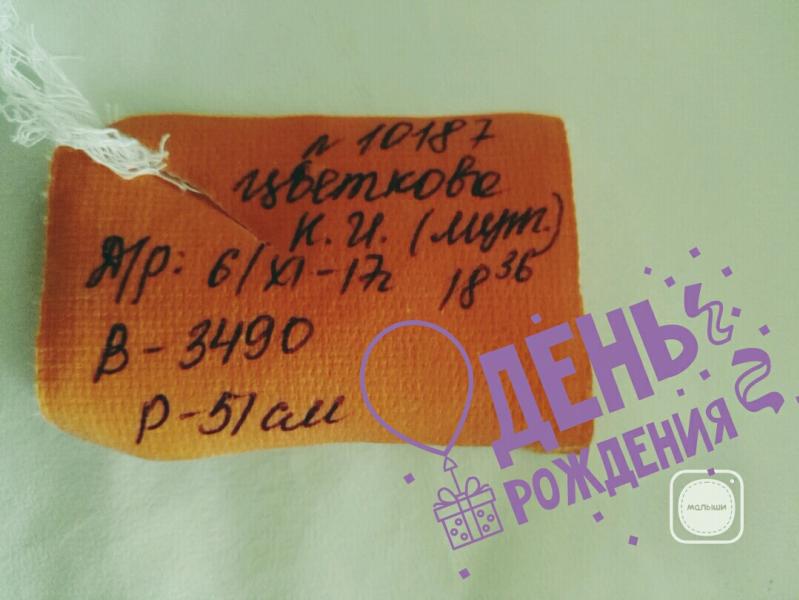 № 10187
Цветкова
К. И. (муж.)
Д/р: 6/XI-17г 18 36
В - 3490
Р - 51 см
ДЕНЬ
РОЖДЕНИЯ
малыши